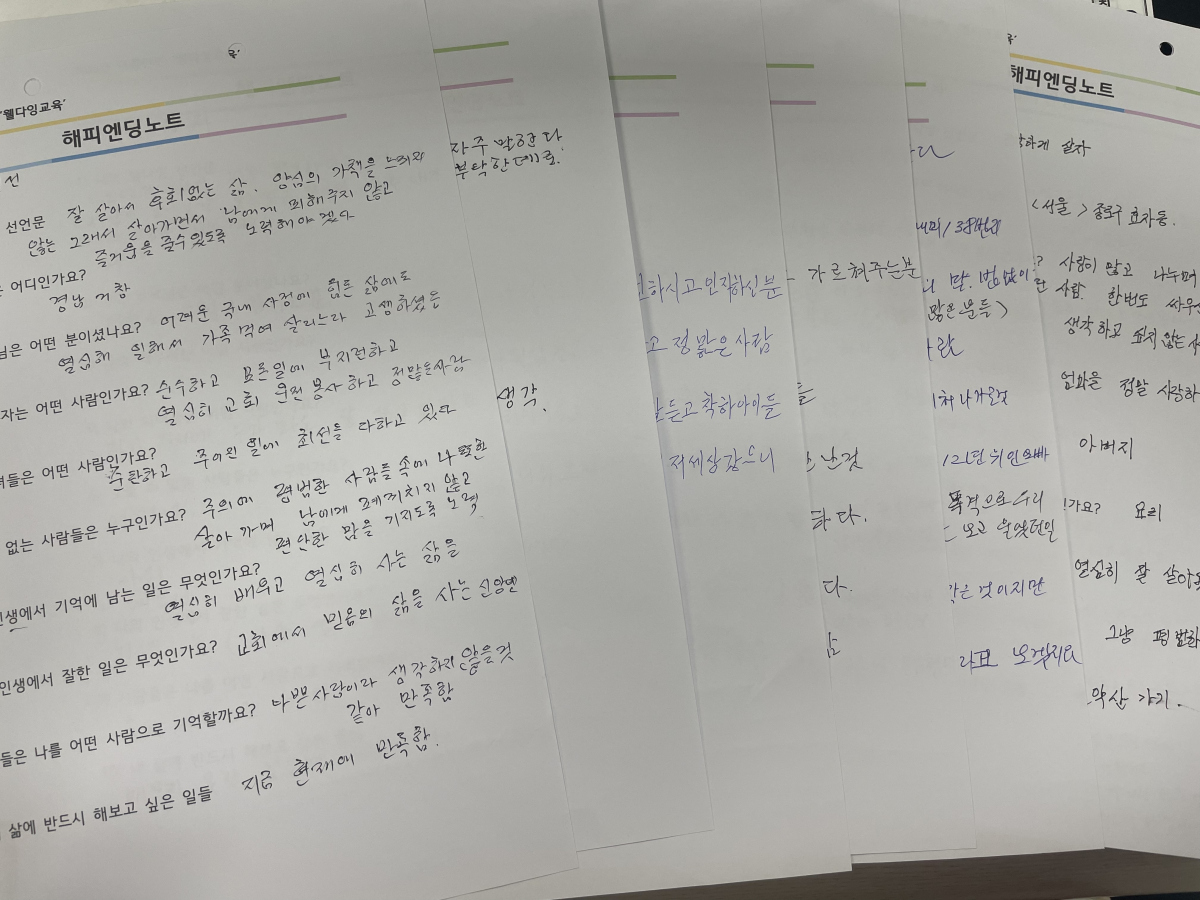 '웰다잉교육'
해피엔딩노트
선
선언문 잘 살아서 후회없는 삶. 양심의 가책을 느끼지
않는 그래서 살아가면서 남에게 피해주지 않고
즐거움을 줄수있도록 노력해야 겠다
은 어디인가요?
경남 거창
님은 어떤 분이셨나요? 어려운 국내 사정에 힘든 삶에도
열심해 일해서 가족 먹여 살리느라 고생하셨음
자는 어떤 사람인가요? 순수하고 모든일에 부지런하고
열심히 교회 운전 봉사하고 정많은사람
녀들은 어떤 사람인가요?
순환하고 주어진 일에 최선을 다하고 있다
없는 사람들은 누구인가요? 주위에 평범한 사람들 속에 나 또한
살아가며 남에게 폐끼치지 않고
편안한 맘을 가지도록 노력
인생에서 기억에 남는 일은 무엇인가요?
열심히 배우고 열심히 사는 삶을
인생에서 잘한 일은 무엇인가요? 교회에서 믿음의 삶을 사는 신앙인
들은 나를 어떤 사람으로 기억할까요? 나쁜사람이라 생각하지 않을것
같아 만족함
삶에 반드시 해보고 싶은 일들 지금 현재에 만족함.
자주 말한다.
부탁한데로.
생각.
하시고 인자하신분
고 정 많은 사람
말듣고 착하아이들
저세상 갔으니
- 가르쳐주는분
들
난것
하다.
다.
남
말. 법없이
많은 분들)
사람
처 나가온것
12년 위인오빠
폭격으로 우리
보고 울었던일
같은 것이지만
라고 보겠지요
해피엔딩노트
하게 살자
<서울> 종로구 효자동.
? 사랑이 많고 나누며
란 사람. 한번도 싸우
생각하고 싶지않는 사
엄마을 정말 사랑하
아버지
인가요? 요리
열심히 잘 살아온
그냥 평범하
약산 가기.